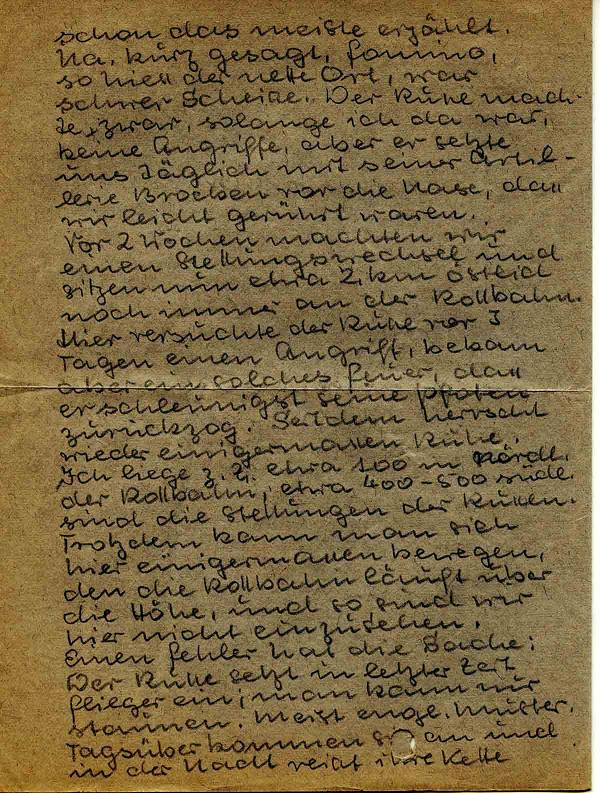 schon das meiste erzählt.
Na, kurz gesagt, Fomino,
so hieß der nette Ort, war
schwer Scheiße. Der Ruße mach-
te, zwar, solange ich da war,
keine Angriffe, aber er setzte
uns täglich mit seiner Artil-
lerie Brocken vor die Nase, daß
wir leicht gerührt waren.
Vor 2 Wochen machten wir
einen Stellungswechsel und
sitzen nun etwa 2 km östlich
noch immer an der Rollbahn.
Hier versuchte der Ruße vor 3
Tagen einen Angriff, bekam
aber ein solches Feuer, daß
er schleunigst seine Pfoten
zurückzog. Seitdem herrscht
wieder einigermaßen Ruhe.
Ich liege z. Z. etwa 100 m nördl.
der Rollbahn, etwa 400-500 südl.
sind die Stellungen der Rußen.
Trotzdem kann man sich
hier einigermaßen bewegen,
den die Rollbahn läuft über
die Höhe, und so sind wir
hier nicht einzusehen.
Einen Fehler hat die Sache:
Der Ruße setzt in letzter Zeit
Flieger ein; man kann nur
staunen. Meist engl. Muster.
Tagsüber kommen sie an und
in der Nacht reißt ihre Kette